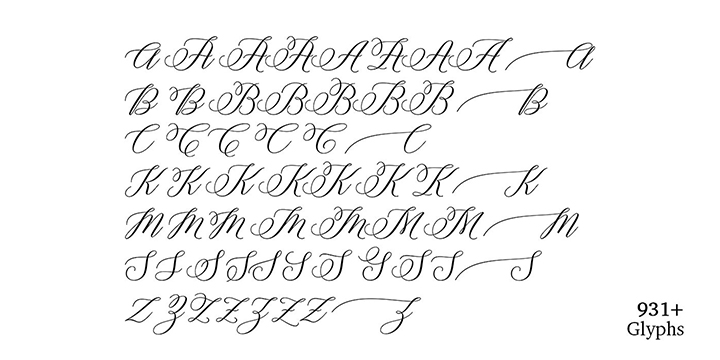 A A A A A A A A A
B B B B B B B B
C C C C C C
K K K K K K K K
M M M M M M M M
S S S S S S S S S S
Z Z Z Z Z Z Z Z
931+
Glyphs